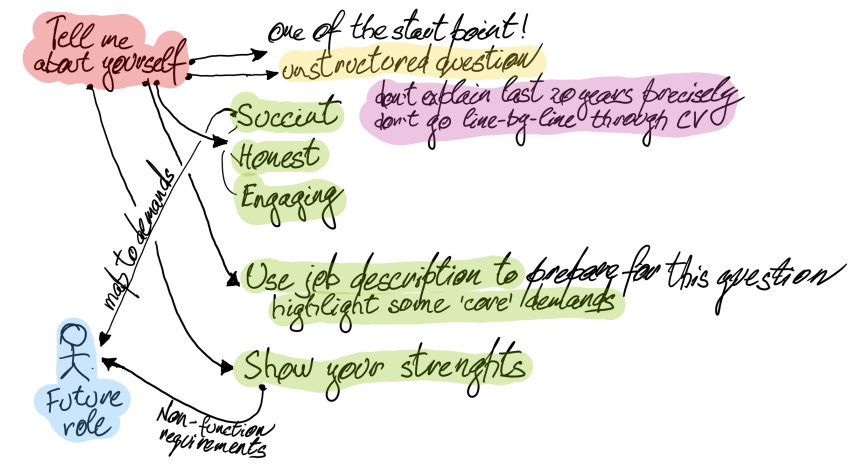 Tell me
about yourself
one of the start point!
unstructured question
don't explain last 20 years precisely
don't go line-by-line through CV
Succint
Honest
Engaging
map to demands
Use job description to prepare for this question
highlight some 'core' demands
Show your strenghts
Future
role
Non-function
requirements